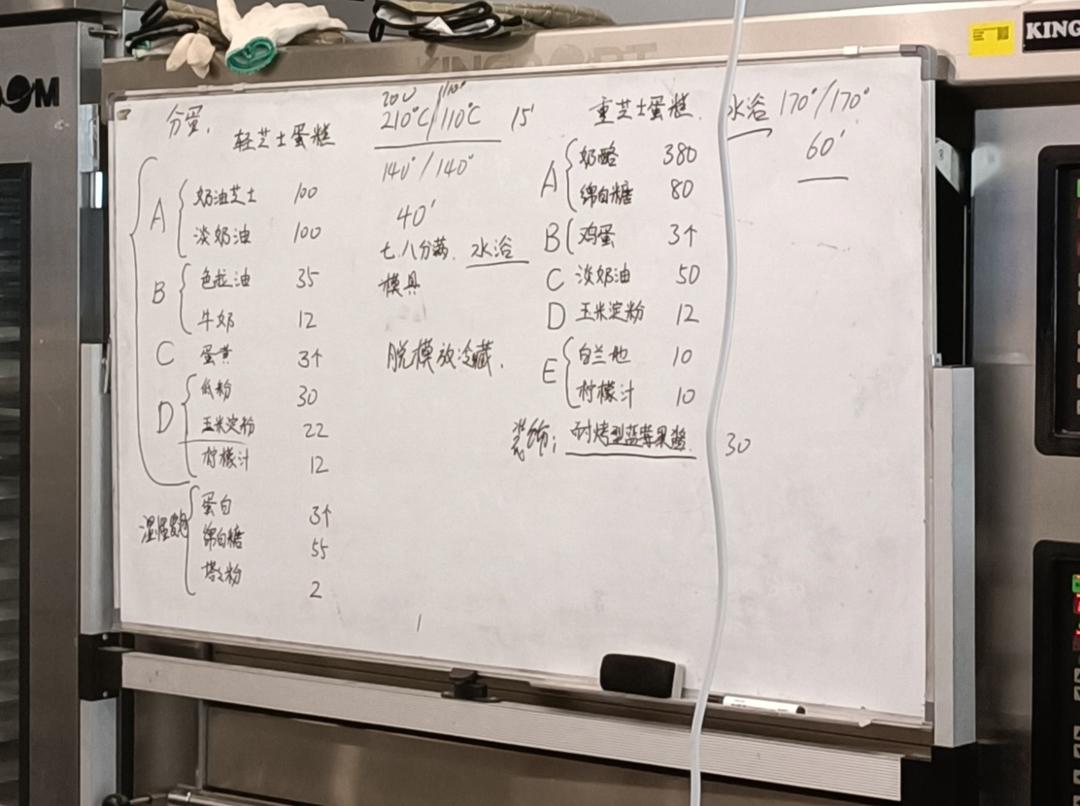 分蛋,
轻芝士蛋糕
200 110°
210°C/110°C 15'
140°/140°
40'
七.八分满. 水浴
模具
脱模放冷藏.
A 奶油芝士 100
淡奶油 100
B 色拉油 35
牛奶 12
C 蛋黄 3个
D 低粉 30
玉米淀粉 22
柠檬汁 12
蛋白 3个
绵白糖 55
塔塔粉 2
重芝士蛋糕. 水浴 170°/170°
60'
A 奶酪 380
绵白糖 80
B 鸡蛋 3个
C 淡奶油 50
D 玉米淀粉 12
E 白兰地 10
柠檬汁 10
装饰: 耐烤型蓝莓果酱. 30
OM
KING